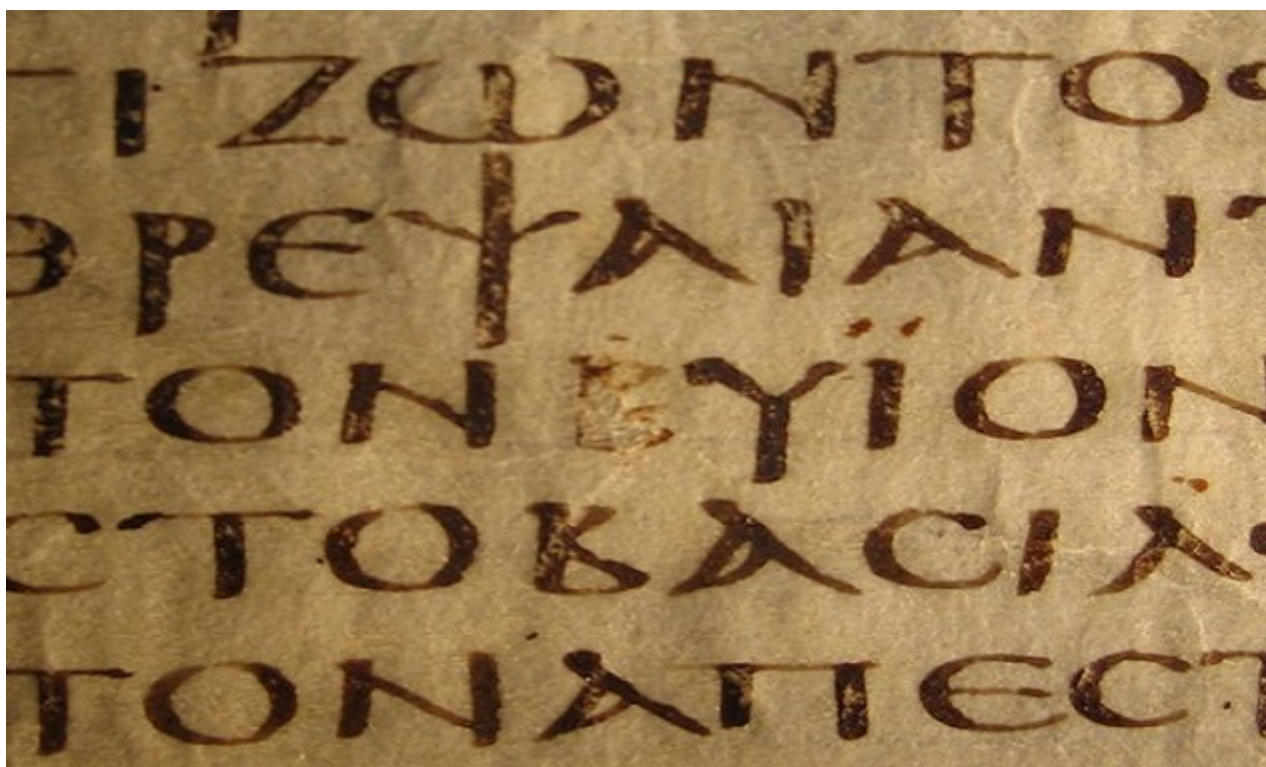 ΤΙΖΩΝΤΟ
ΘΡΕΨΑΙΑΝ
ΤΟΝ ΥΪΟΝ
CΤΟΒΑCΙΛ
ΤΟΝΑΠΕCΤ